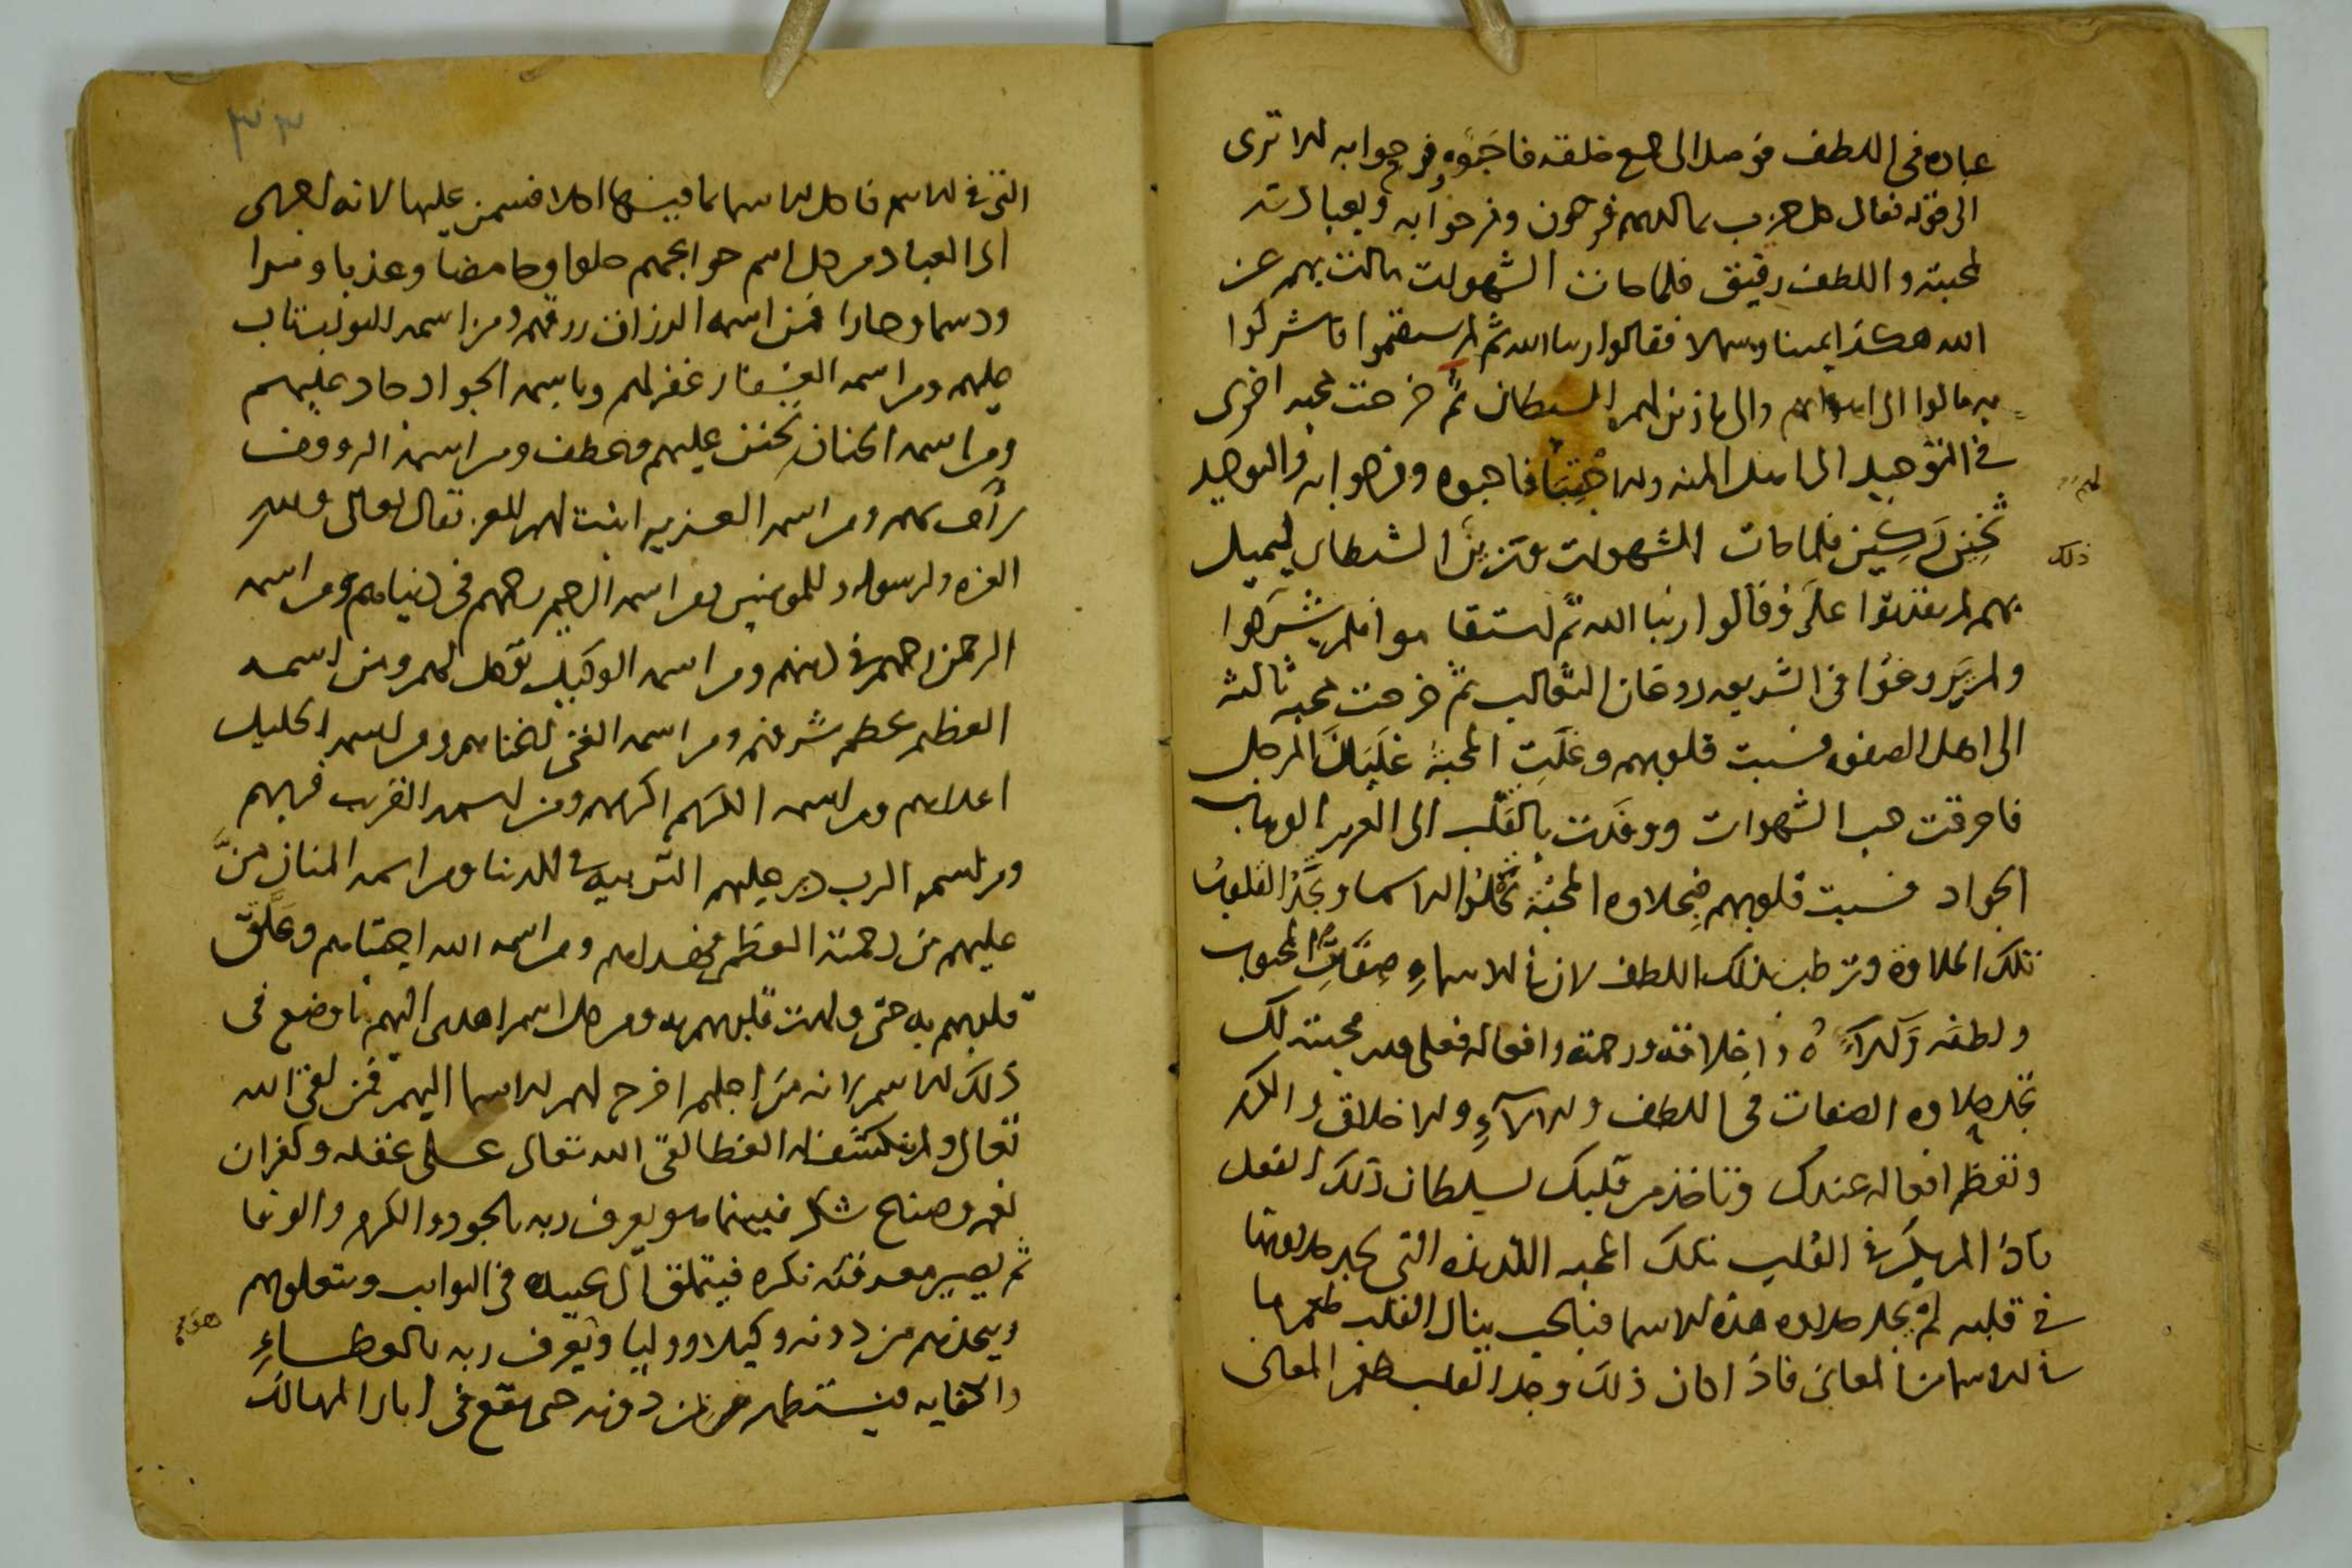 عباده فى اللطف فوصل الى جميع خلقه فاحبوه وفرحوا به الا ترى
الى قوله تعالى كل حزب بما لديهم فرحون وفرحوا به وبعبادته
لمحبته واللطف رقيق فلما كانت الشهوات مالت بهم عن
الله هكذا يمينا وشمالا فقالوا ربنا الله ثم لم يستقيموا فاشركوا
به مالوا الى والى ما زين لهم الشيطان ثم خرجت محبة اخرى
فى التوحيد الى اهل المنة والاجتبا فاحبوه وفرحوا به والتوحيد
فلما كانت الشهوات وتزين الشيطان ليميل
بهم لم يقدروا على ذلك وقالوا ربنا الله ثم استقاموا فلم يشركوا
ولم يروغوا فى الشريعه روغان الثعالب ثم خرجت محبة ثالثة
الى اهل الصفوه فسبت قلوبهم وغلت المحبة غليان المرجل
فاحرقت حب الشهوات ووفدت بالقلب الى العزيز الوهاب
الجواد فسبت قلوبهم فبحلاوه المحبة الاسما وتجد القلوب
تلك الحلاوة وترطب بذلك اللطف لان فى الاسماء صفات المحبوب
ولطفه وآلاءه واخلاقه ورحمته وافعاله فعلى قدر محبته لك
تجد حلاوه الصفات فى اللطف والآلاء والاخلاق والكرم
وتعظم افعاله عندك وتاخذ من قلبك سلطان ذلك الفعل
فاذا لم يكن فى القلب تلك المحبه اللذيذه التى يجد حلاوتها
فى قلبه لم يجد حلاوه هذه الاسما فبالحب ينال القلب طعم ما
فى الاسما من المعانى فاذا كان ذلك وجد القلب طعم المعانى
٣٣
التى فى الاسم فاكل الاسما بما فيها اكلا فسمن عليها لانه اهدى
الى العباد من كل اسم حوايجهم حلوا وحامضا وعذبا
ودسما وحارا فمن اسمه الرزاق رزقهم ومن اسمه التواب تاب
عليهم ومن اسمه الغفار غفر لهم وباسمه الجواد جاد عليهم
ومن اسمه الحنان تحنن عليهم وعطف ومن اسمه الرووف
رأف بهم ومن اسمه العزيز اثبت لهم العز فقال تعالى ولله
العزه ولرسوله وللمومنين ومن اسمه الرحيم رحمهم فى دنياهم ومن اسمه
الرحمن رحمهم فى دينهم ومن اسمه الوكيل توكل لهم ومن اسمه
العظيم عظم شرفهم ومن اسمه الغنى اغناهم ومن اسمه الجليل
ومن اسمه الكريم اكرمهم ومن اسمه القريب قربهم
ومن اسمه الرب دبر عليهم التربيه فى الدنيا ومن اسمه المنان من
عليهم من رحمته العظمى ومن اسمه الله اجتباهم وعلق
قلوبهم به حتى ولهت قلوبهم به ومن كل اسم اهدى اليهم ما وضع فى
ذلك الاسم لانه من اجلهم اخرج لهم الاسما اليهم فمن لقى الله
تعالى ولم ينكشف له الغطا لقى الله تعالى على غفله وكفران
نعم وضيع شكر فبينما هو يعرف ربه بالجود والكرم والوفا
ثم يصير معرفته نكره فيتملق الى عبيده فى النوايب ويتعلق بهم
ويتخذهم من دونه وكيلا ووليا ويعرف ربه بالعطاء
والكفايه فيستطعم من دونه حتى يقع فى ابار المهالك